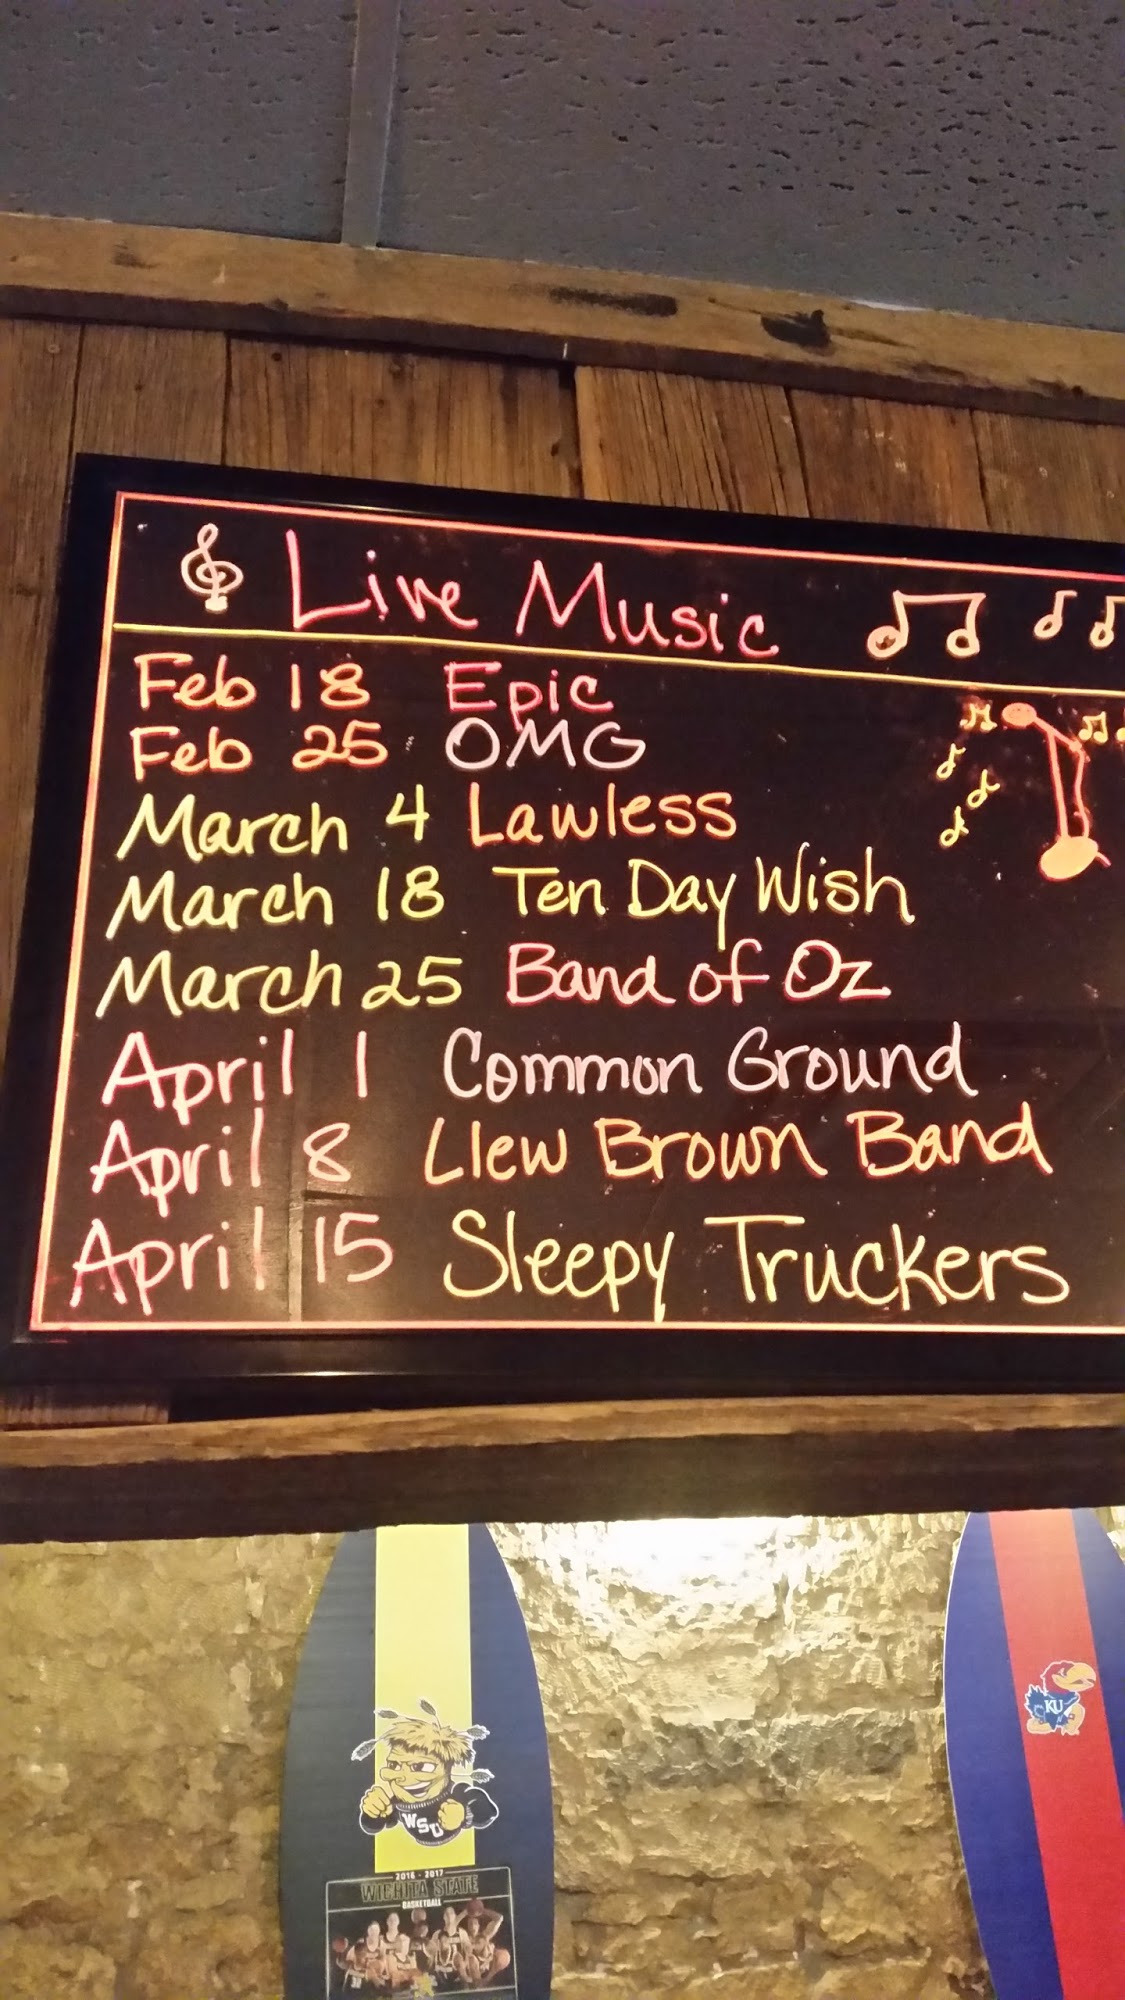 Live Music
Feb 18 Epic
Feb 25 OMG
March 4 Lawless
March 18 Ten Day Wish
March 25 Band of Oz
April 1 Common Ground
April 8 Llew Brown Band
April 15 Sleepy Truckers
WSU
2016 - 2017
WICHITA STATE
BASKETBALL
KU